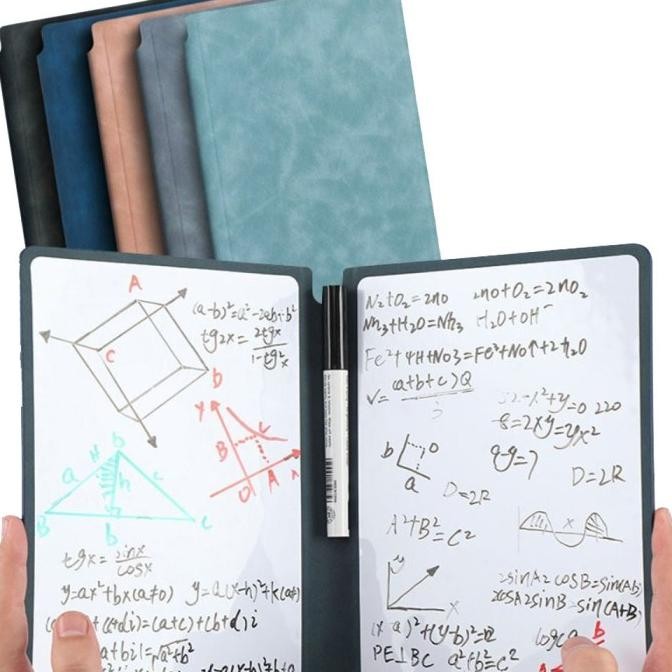 A
C
D
(a-b)²=a²-2ab+b²
tg2x= 2tgx
1-tg²x
Y
B
C
O
A
x
b
a
H
h
c
B
b
C
tgx= sinx
cosx
y=ax²+bx(a≠0)  y=a(x-h)²+k(a≠
+(c+di)=(a+c)+(b+d)i
a+bi|=√a²+b²
N₂+O₂=2no  2no+O₂=2nO₂
NH₃+H₂O=NH₃  H₂O+OH⁻
Fe²+4H+NO3=Fe³+NO↑+2H₂O
V= (a+b+c)Q
3
y=0 220
-8=2xy=yx²
b
O
a
D=2R
D=2R
A²+B²=C²
x
y
x
2sinA2cosB=sin(AB)
2cosA2sinB=sin(A+B)
(x-a)²+(y-b)²=
PE⊥BC  a²+b²=c²
b